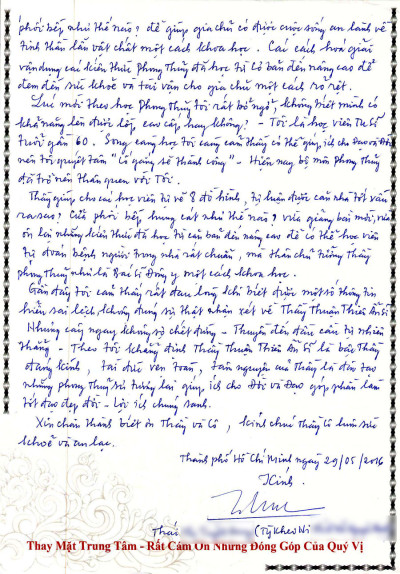 phối bếp như thế nào? để giúp gia chủ có được cuộc sống an lành về
tinh thần lẫn vật chất một cách khoa học. Các cách hoá giải
vận dụng các kiến thức phong thuỷ đã học từ cơ bản đến nâng cao để
đem đến sức khoẻ và tài vận cho gia chủ một cách rõ rệt.
Lúc mới theo học phong thuỷ tôi rất bỡ ngỡ, không biết mình có
khả năng lên được lớp cao cấp hay không? - Tôi là học viên Tu Sĩ
tuổi gần 60. Song càng học tôi càng cảm thấy có thể giúp ích cho Đạo và Đời
nên tôi quyết tâm "cố gắng sẽ thành công" - Hiện nay bộ môn phong thuỷ
đã trở nên thân quen với Tôi.
Thầy giúp cho các học viên tự vẽ đồ hình, tự luận được căn nhà tốt xấu
ra sao? Cửa phối bếp hung cát như thế nào? vừa giảng bài mới, vừa
ôn lại những kiến thức đã học từ căn bản đến nâng cao để có thể học viên
tự đoán bệnh người trong nhà rất chuẩn, mà thân chủ tưởng thầy
phong thuỷ như là Bác Sĩ Đông y một cách khoa học.
Gần đây tôi cảm thấy rất đau lòng khi biết được một số thông tin
hiểu sai lệch không đúng sự thật nhận xét về Thầy Thuận Thiên Ẩn Sĩ
Nhưng cây ngay không sợ chết đứng - Thuyền đến đầu cầu tự nhiên
thẳng - Theo tôi khẳng định Thầy Thuận Thiên Ẩn Sĩ là bậc Thầy
đáng kính, tài đức vẹn toàn, tâm nguyện của Thầy là đào tạo
những phong thuỷ sư tương lai giúp ích cho Đời và Đạo góp phần làm
tốt đạo đẹp đời - lợi ích chúng sanh.
Xin chân thành biết ơn Thầy và Cô, kính chúc Thầy Cô luôn sức
khoẻ và an lạc.
Thành phố Hồ Chí Minh ngày 29/05/2016
Kính.
(Tỳ Kheo Ni
Thay Mặt Trung Tâm - Rất Cám Ơn Những Đóng Góp Của Quý Vị